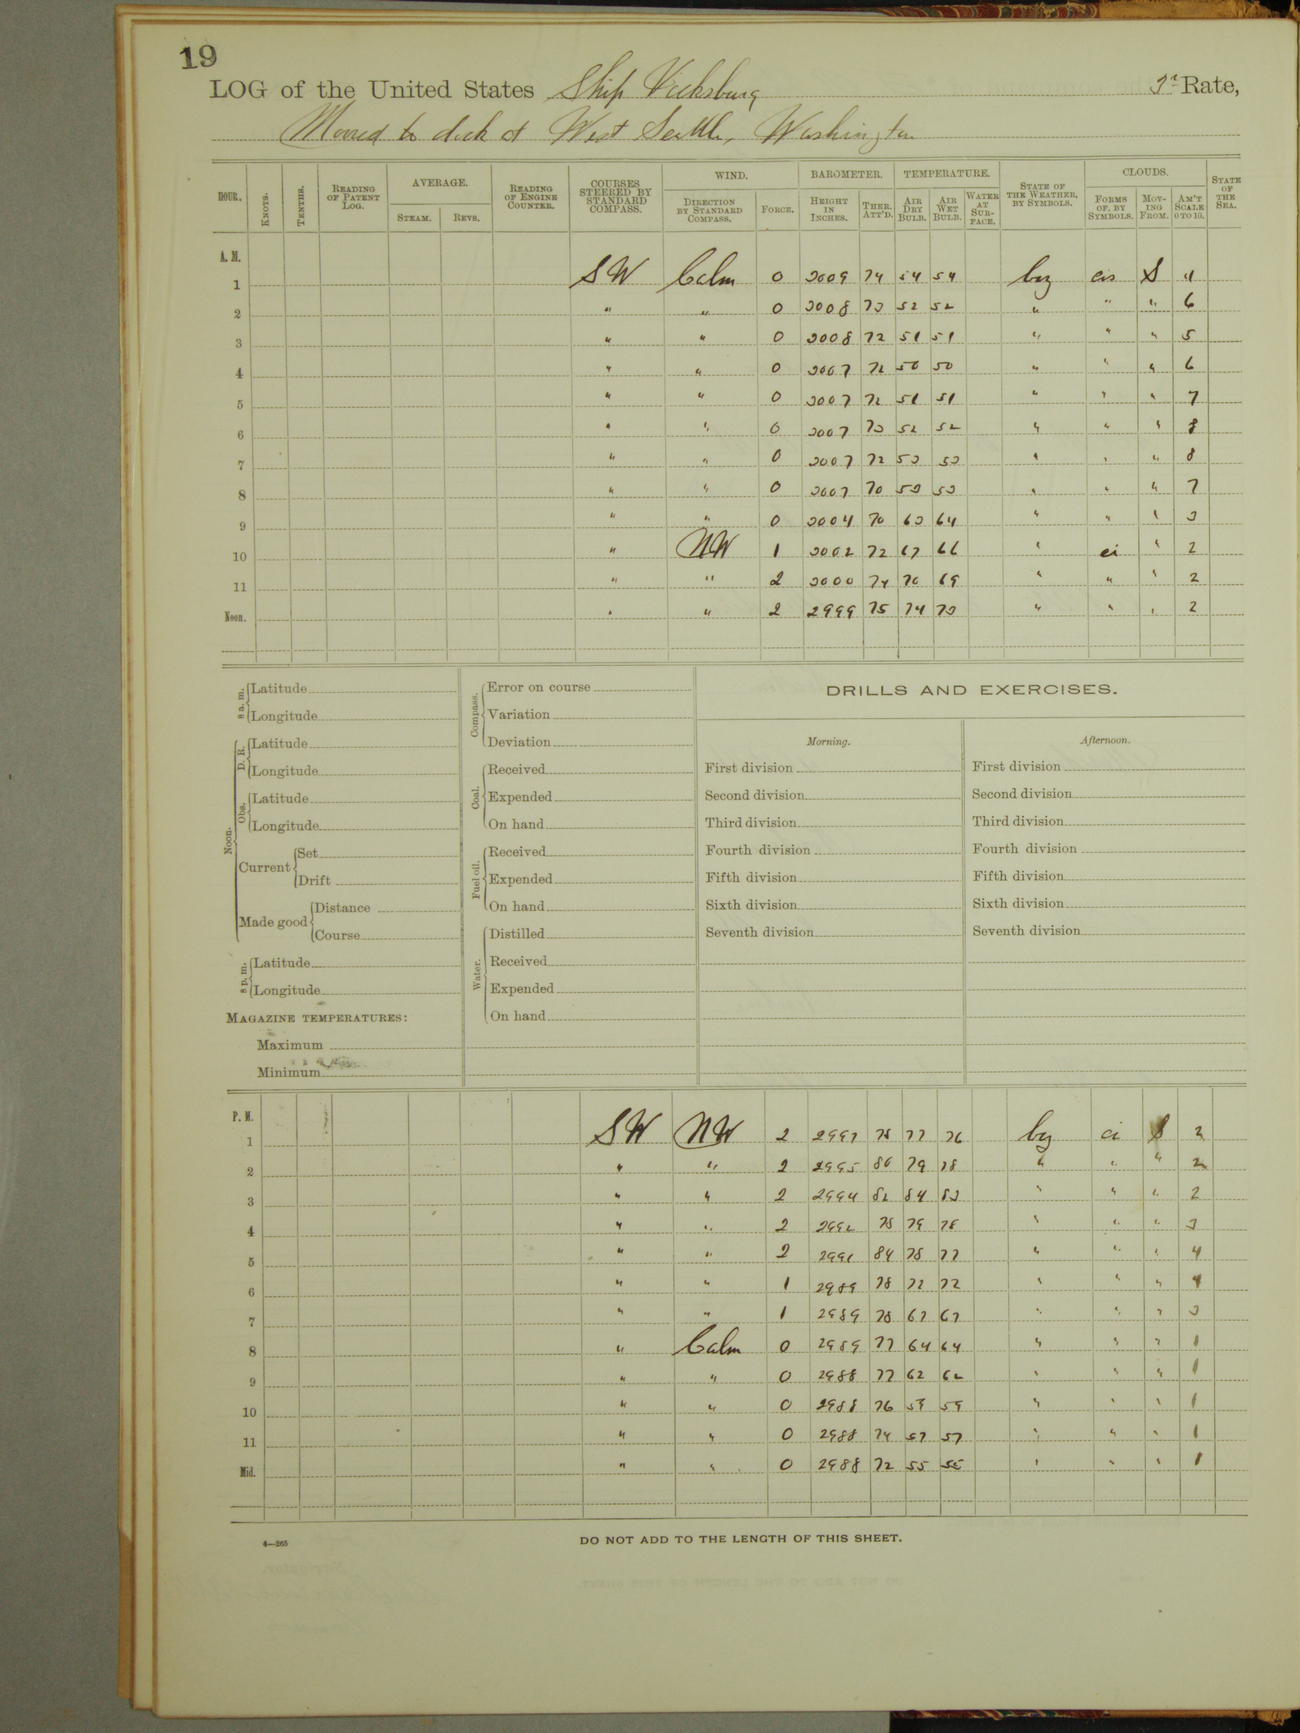 19
LOG of the United States Ship Vicksburg 3d Rate,
Moored to dock at West Seattle, Washington
HOUR. KNOTS. TENTHS. READING OF PATENT LOG. AVERAGE. STEAM. REVS. READING OF ENGINE COUNTER. COURSES STEERED BY STANDARD COMPASS. WIND. DIRECTION BY STANDARD COMPASS. FORCE. BAROMETER. HEIGHT IN INCHES. THER. ATT'D. TEMPERATURE. AIR DRY BULB. AIR WET BULB. WATER AT SURFACE. STATE OF THE WEATHER, BY SYMBOLS. CLOUDS. FORMS OF, BY SYMBOLS. MOVING FROM. AM'T SCALE 0 TO 10. STATE OF THE SEA.
A. M.
1 SW Calm 0 3009 74 54 54 bz cis S 4
2 " " 0 3008 73 52 52 " " " 6
3 " " 0 3008 72 51 51 " " " 5
4 " " 0 3007 72 50 50 " " " 6
5 " " 0 3007 72 51 51 " " " 7
6 " " 0 3007 73 52 52 " " " 8
7 " " 0 3007 72 53 53 " " " 8
8 " " 0 3007 70 53 53 " " " 7
9 " " 0 3004 70 63 64 " " " 3
10 " NW 1 3002 72 67 66 " ci " 2
11 " " 2 3000 74 70 69 " " " 2
Noon. " " 2 2999 75 74 73 " " " 2
8 a. m. Latitude
Longitude
Noon. D. R. Latitude
Longitude
Obs. Latitude
Longitude
Current Set
Drift
Made good Distance
Course
8 p. m. Latitude
Longitude
MAGAZINE TEMPERATURES:
Maximum
Minimum
Compass. Error on course
Variation
Deviation
Coal. Received
Expended
On hand
Fuel oil. Received
Expended
On hand
Water. Distilled
Received
Expended
On hand
DRILLS AND EXERCISES.
Morning.
First division
Second division
Third division
Fourth division
Fifth division
Sixth division
Seventh division
Afternoon.
First division
Second division
Third division
Fourth division
Fifth division
Sixth division
Seventh division
P. M.
1 SW NW 2 2997 78 77 76 bz ci S 2
2 " " 2 2995 80 79 78 " " " 2
3 " " 2 2994 82 84 83 " " " 2
4 " " 2 2992 78 79 78 " " " 3
5 " " 2 2991 84 78 77 " " " 4
6 " " 1 2989 78 72 72 " " " 4
7 " " 1 2989 78 67 67 " " " 3
8 " Calm 0 2989 77 64 64 " " " 1
9 " " 0 2988 77 62 62 " " " 1
10 " " 0 2988 76 59 59 " " " 1
11 " " 0 2988 74 57 57 " " " 1
Mid. " " 0 2988 72 55 55 " " " 1
4—265
DO NOT ADD TO THE LENGTH OF THIS SHEET.